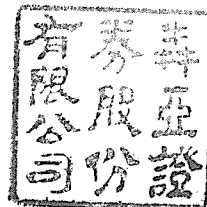 犇亞證
券股份
有限公司